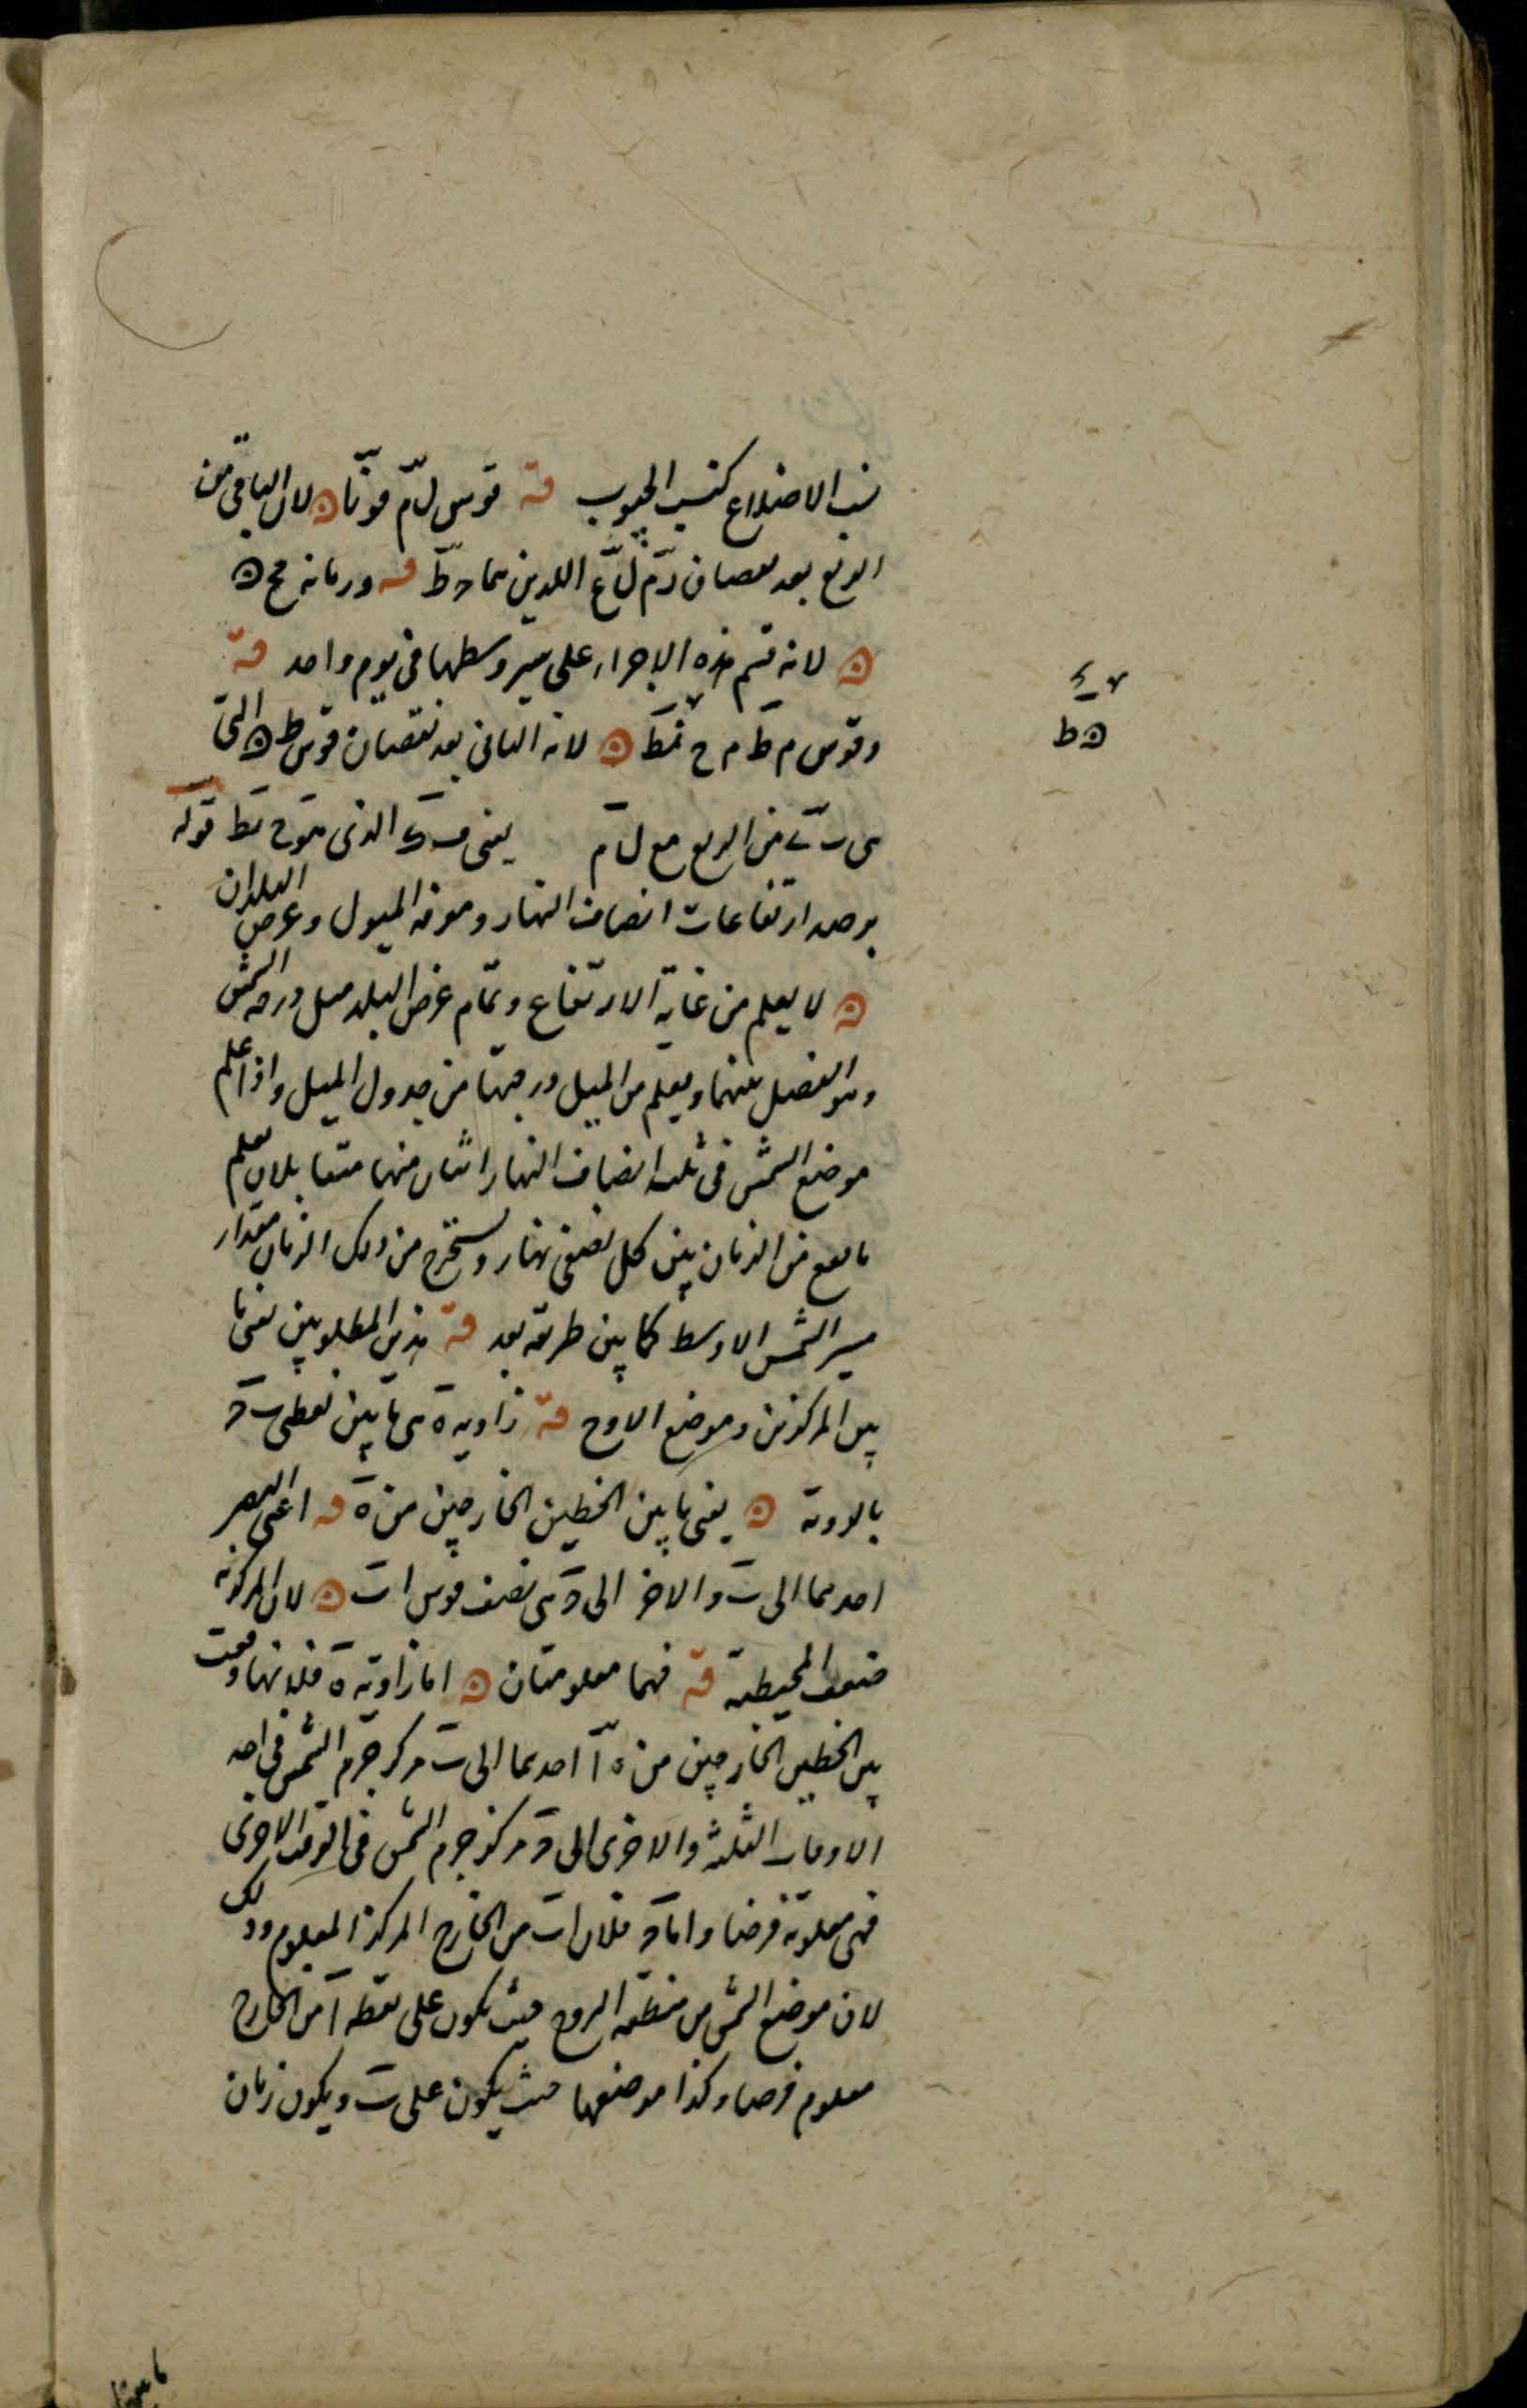 نسب الاضلاع كنسب الجيوب قه قوس ل م مونا ه لان الباقى من
الربع بعد نقصان د م ل ع اللذين هما قه وزمانه مح ه
ه لانه قسم هذه الاجزاء على مسير وسطها فى يوم واحد قه
وقوس م ط م ح نمط ه لانه الباقى بعد نقصان قوس ط ه التى
هى من الربع مع ل م يعنى الذى قوله
برصد ارتفاعات انصاف النهار ومعرفة الميول وعرض البلدان
ه لا يعلم من غاية الارتفاع وتمام عرض البلد ميل درجة الشمس
وهو الفضل بينهما ويعلم من الميل درجتها من جدول الميل واذا علم
موضع الشمس فى ثلثه انصاف النهار اثنان منها متقابلان يعلم
ما يقع من الزمان بين كل نصفى نهار ويستخرج من ذلك الزمان مقدار
مسير الشمس الاوسط كما بين طريقه بعد قه هذين المطلوبين يعنى ما
بين المركزين وموضع الاوج قه زاوية ه هى ما بين نقطتى ب د
بالرؤية ه يعنى ما بين الخطين الخارجين من ه قه اعنى البصر
احدهما الى ب والاخر الى د هى نصف قوس ا ب ه لان المركزية
ضعف المحيطية قه فهما معلومتان ه اما زاوية ه فلانها وقعت
بين الخطين الخارجين من ه ا احدهما الى ب مركز جرم الشمس فى احد
الاوقات الثلثة والاخرى الى د مركز جرم الشمس فى الوقت الاخرى
فهى معلومة فرضا واما د فلان ا ب من الخارج المركز المعلوم وذلك
لان موضع الشمس من منطقة البروج حيث يكون على نقطة ا من الخارج
معلوم فرضا وكذا موضعها حيث يكون على ب ويكون زمان
ه ط